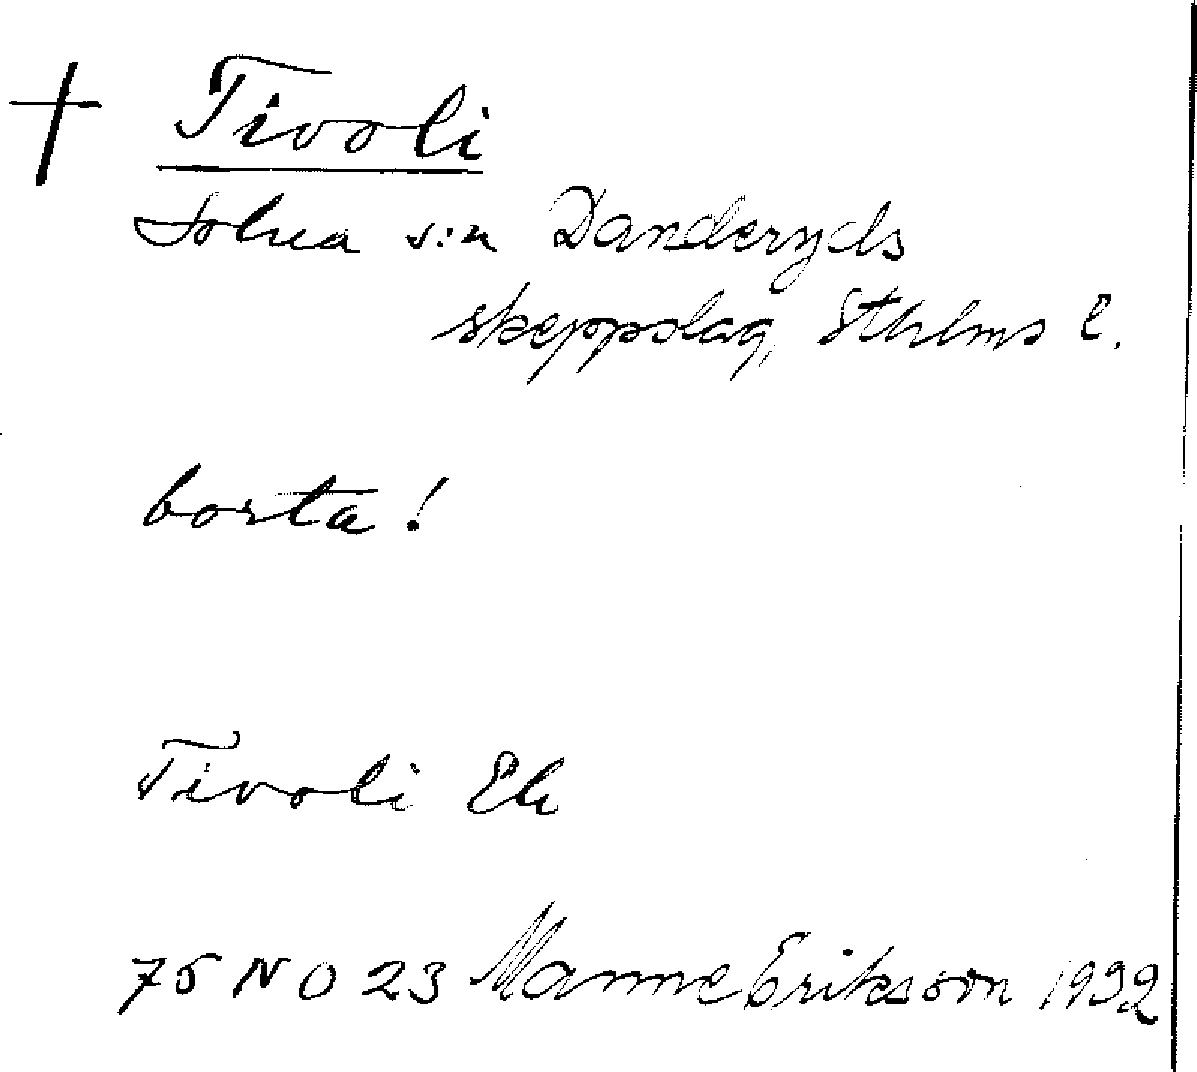 † Tivoli
Solna s:n Danderyds
skeppslag, Sthlms l.
borta!
Tivoli Ek
75 NO 23 Manne Eriksson 1932